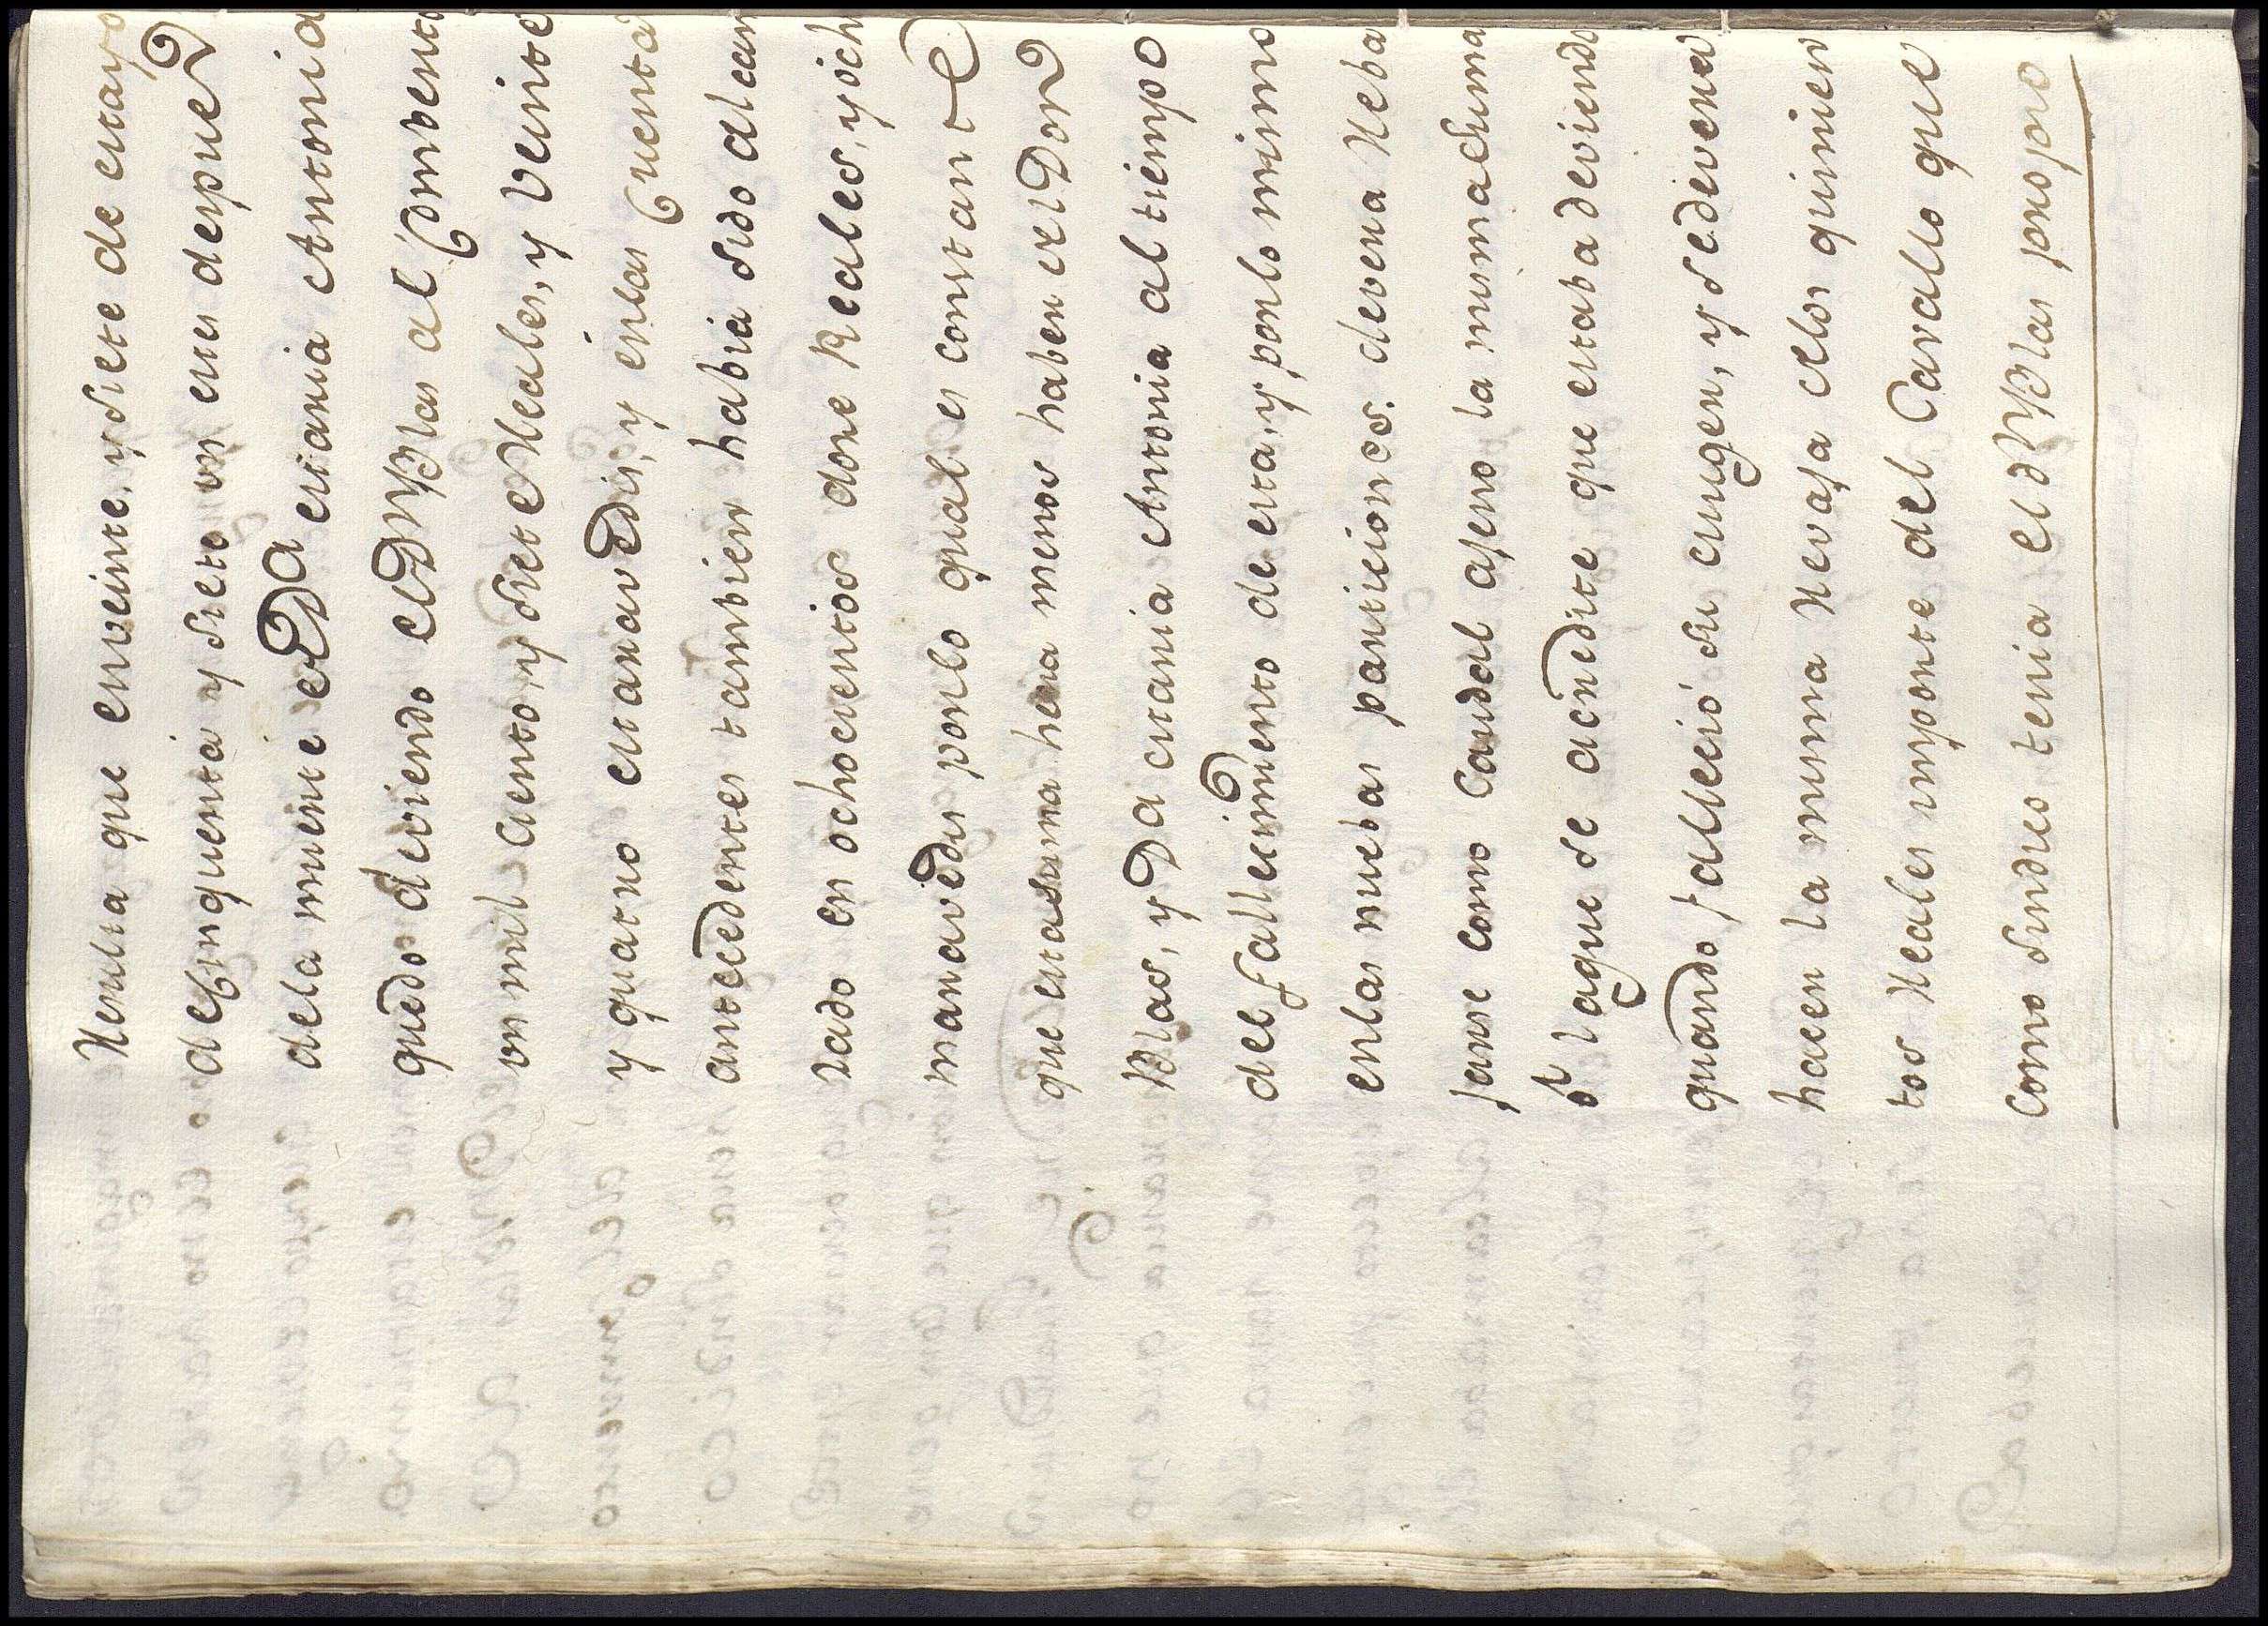 Resulta que en veinte, y siete de mayo
de Cinquenta y siete un mes despues
de la muerte de D.a Estania Antonia
quedo deviendo el D.n Blas al Convento
un mil ciento, y siete Reales, y veinte
y quatro maravedis, y en las Cuentas
antecedentes tambien habia sido alcan
zado en ochocientos doze Reales, y och
maravedis por lo qual es constante
que esta suma hera menos haber el Don
Blas, y D.a Estania Antonia al tiempo
del fallecimiento de esta, y por lo mismo
en las nuebas particiones. devera Reba
jarse como Caudal ajeno la misma suma
ó la que se acredite que estaba deviendo
quando fallecio su muger, y se deveran
hacer la misma Revaja de los quinien
tos Reales importe del Cavallo que
como sindico tenia el D.n Blas pero si pro